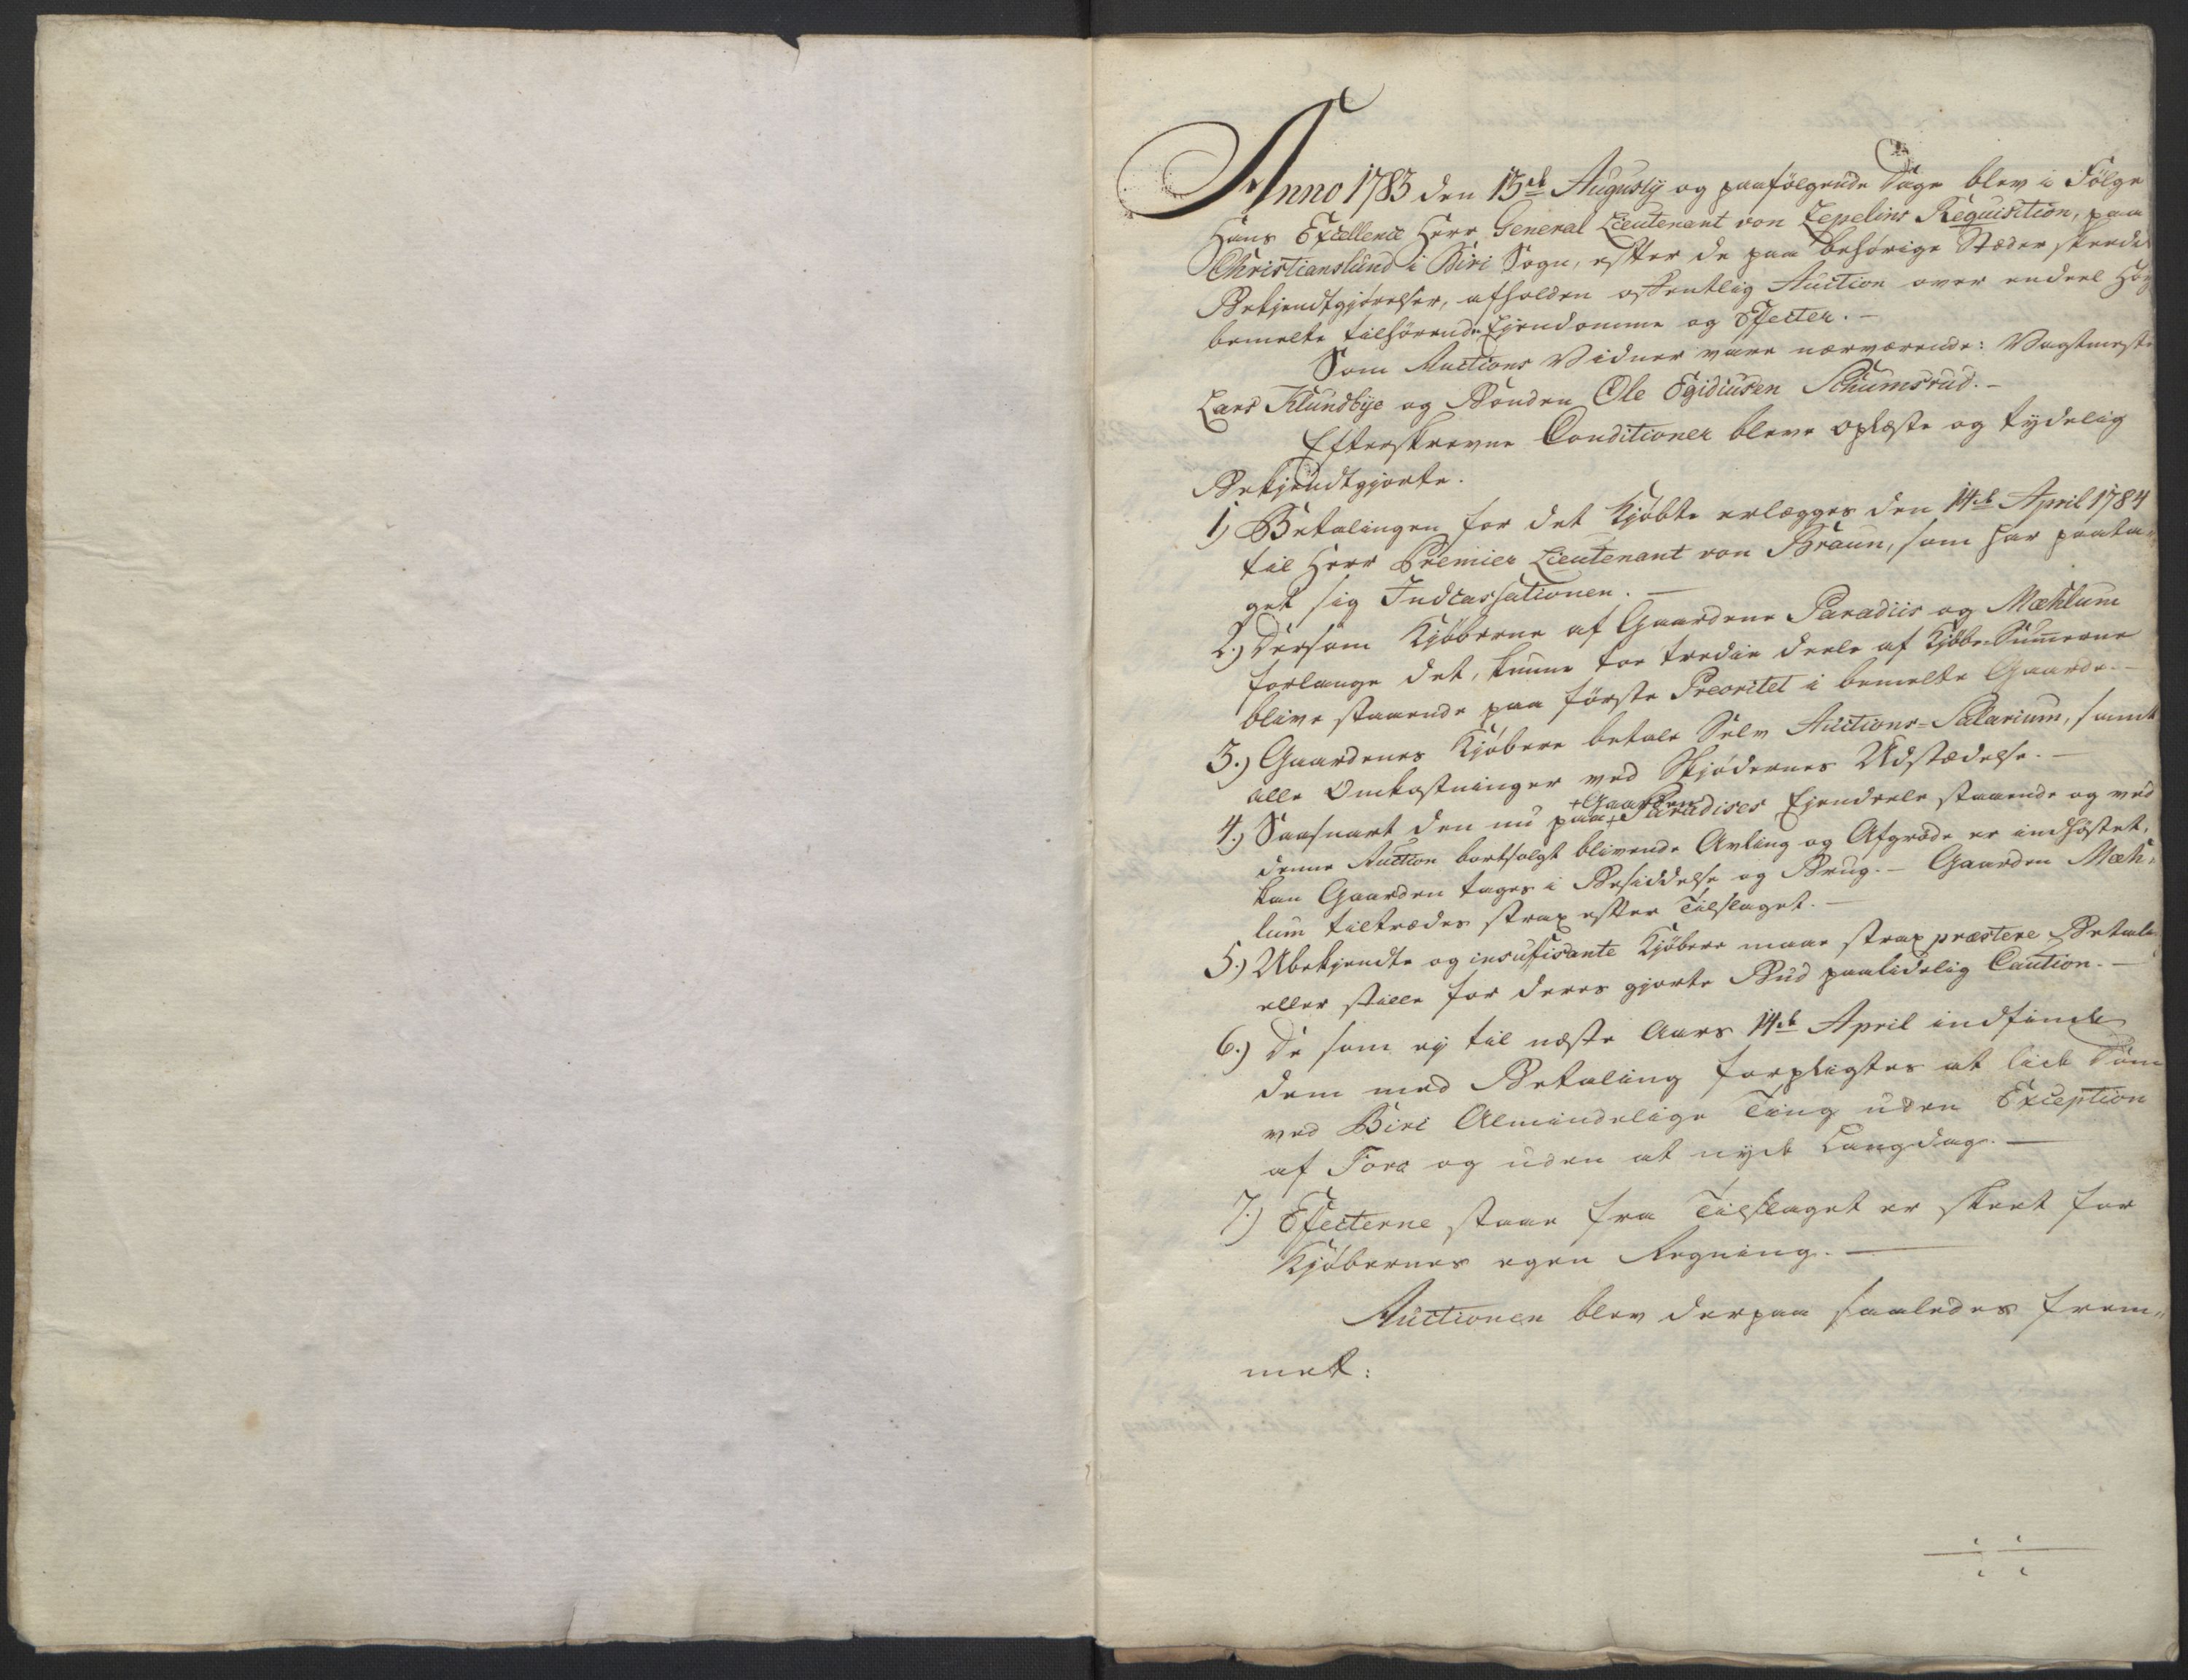 Anno 1783 den 15de Augustij og paafölgende Dage blev i Fölge
Hans Excellence Herr General Lieutenant von Zepelins Requisition, paa
Christianslund i Biri Sogn, efter de paa behörige Stæder skeede
Bekjendtgjörelser, afholden offentlig Auction over endeel Höy
bemelte tilhörende Ejendomme og Effecter.-
Som Auctions Vidner vare nærværende: Vagtmeste
Lars Klundbye og Bonden Ole Egidiusen Schumsrud.-
Efterskrevne Conditioner bleve oplæste og tydelig
Bekjendtgjorte.
1) Betalingen for det Kjöbte erlægges den 14de April 1784
til Herr Premier Lieutenant von Braun, som har paata-
get sig Indcassationen.-
2.) Dersom Kjöberne af Gaardene Paradiis og Mæhlum
forlange det, kunne toe tredie deele af Kjöbe-Summerne
blive staaende paa förste Preoritet i bemelte Gaarde.-
3.) Gaardenes Kjöbere betale Selv Auctions-Salarium, samt
alle Omkostninger ved Skjödernes Udstædelse.-
+Gaarden
4.) Saasnart den nu paa + Paradises Ejendeele staaende og ved
denne Auction bortsolgt blivende Avling og Afgröde er indhöstet,
kan Gaarden tages i Besiddelse og Brug.- Gaarden Mæh-
lum tiltrædes strax efter Tilslaget.-
5.) Ubekjendte og insufisante Kjöbere maae strax præstere Betale
eller stille for deres gjorte Bud paalidelig Caution.-
6.) De som ej til næste Aars 14de April indfinde
dem med Betaling forpligtes at lide Dom
ved Biri Almindelige Ting uden Exception
af Fora og uden at nyde Laugdag.-
7.) Effecterne staae fra Tilslaget er skeet for
Kjöbernes egen Regning.-
Auctionen blev derpaa saaledes frem-
met: